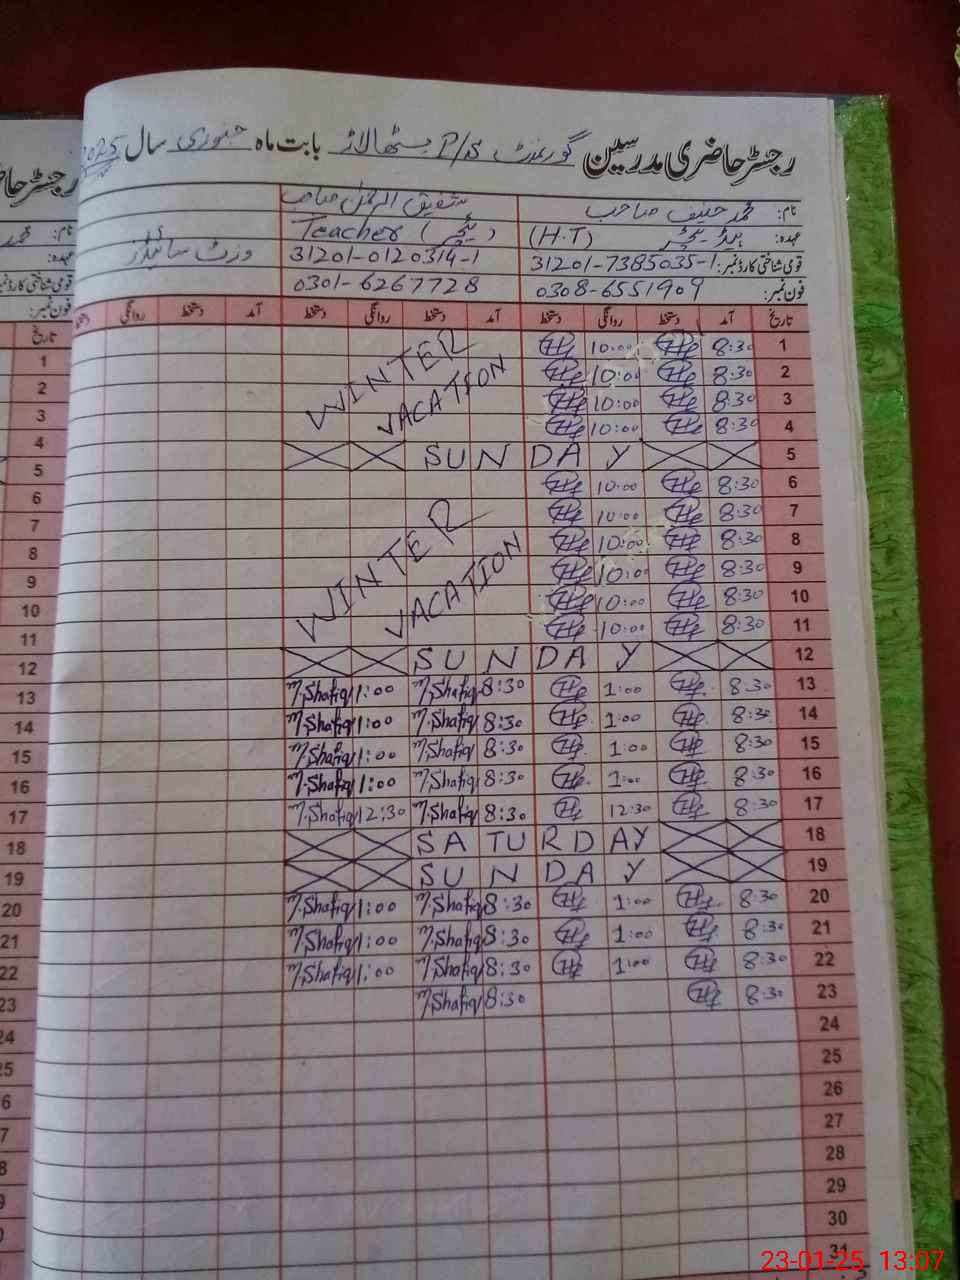 رجسٹر حاضری مدرسین گورنمنٹ P/S بابت ماہ جنوری سال 2025
نام: محمد حنیف صاحب شفیق الرحمٰن صاحب
عہدہ: ہیڈ ٹیچر (H.T) Teacher (ٹیچر) وزٹ
قومی شناختی کارڈ نمبر: 31201-7385035-1 31201-0120314-1
فون نمبر: 0308-6551909 0301-6267728
تاریخ آمد دستخط روانگی دستخط آمد دستخط روانگی دستخط آمد دستخط روانگی
1 8:30 10:00
2 8:30 10:00
3 8:30 10:00
4 8:30 10:00
WINTER
VACATION
5 SUNDAY
6 8:30 10:00
7 8:30 10:00
8 8:30 10:00
9 8:30 10:00
10 8:30 10:00
11 8:30 10:00
WINTER
VACATION
12 SUNDAY
13 8:30 1:00 8:30 M.Shafiq 1:00 M.Shafiq
14 8:30 1:00 8:30 M.Shafiq 1:00 M.Shafiq
15 8:30 1:00 8:30 M.Shafiq 1:00 M.Shafiq
16 8:30 1:00 8:30 M.Shafiq 1:00 M.Shafiq
17 8:30 12:30 8:30 M.Shafiq 12:30 M.Shafiq
18 SATURDAY
19 SUNDAY
20 8:30 1:00 8:30 M.Shafiq 1:00 M.Shafiq
21 8:30 1:00 8:30 M.Shafiq 1:00 M.Shafiq
22 8:30 1:00 8:30 M.Shafiq 1:00 M.Shafiq
23 8:30 8:30 M.Shafiq
24
25
26
27
28
29
30
31
23-01-25 13:07